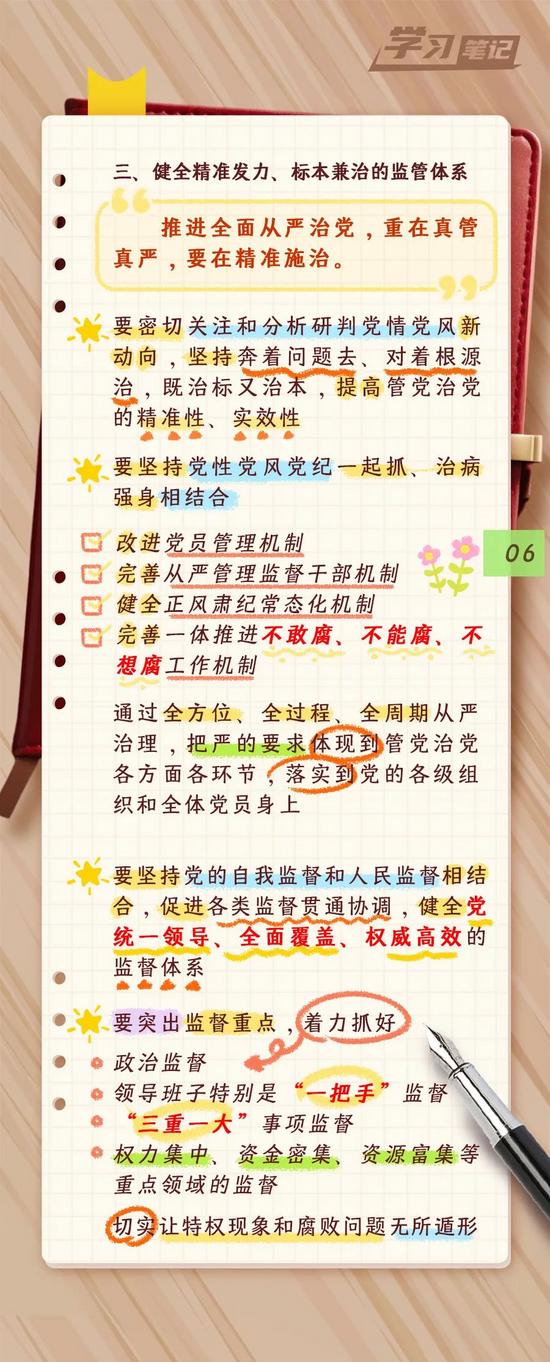 学习笔记
三、健全精准发力、标本兼治的监管体系
推进全面从严治党，重在真管
真严，要在精准施治。
要密切关注和分析研判党情党风新
动向，坚持奔着问题去、对着根源
治，既治标又治本，提高管党治党
的精准性、实效性
要坚持党性党风党纪一起抓、治病
强身相结合
改进党员管理机制
06
完善从严管理监督干部机制
健全正风肃纪常态化机制
完善一体推进不敢腐、不能腐、不
想腐工作机制
通过全方位、全过程、全周期从严
治理，把严的要求体现到管党治党
各方面各环节，落实到党的各级组
织和全体党员身上
要坚持党的自我监督和人民监督相结
合，促进各类监督贯通协调，健全党
统一领导、全面覆盖、权威高效的
监督体系
要突出监督重点，着力抓好
政治监督
领导班子特别是“一把手”监督
“三重一大”事项监督
权力集中、资金密集、资源富集等
重点领域的监督
切实让特权现象和腐败问题无所遁形